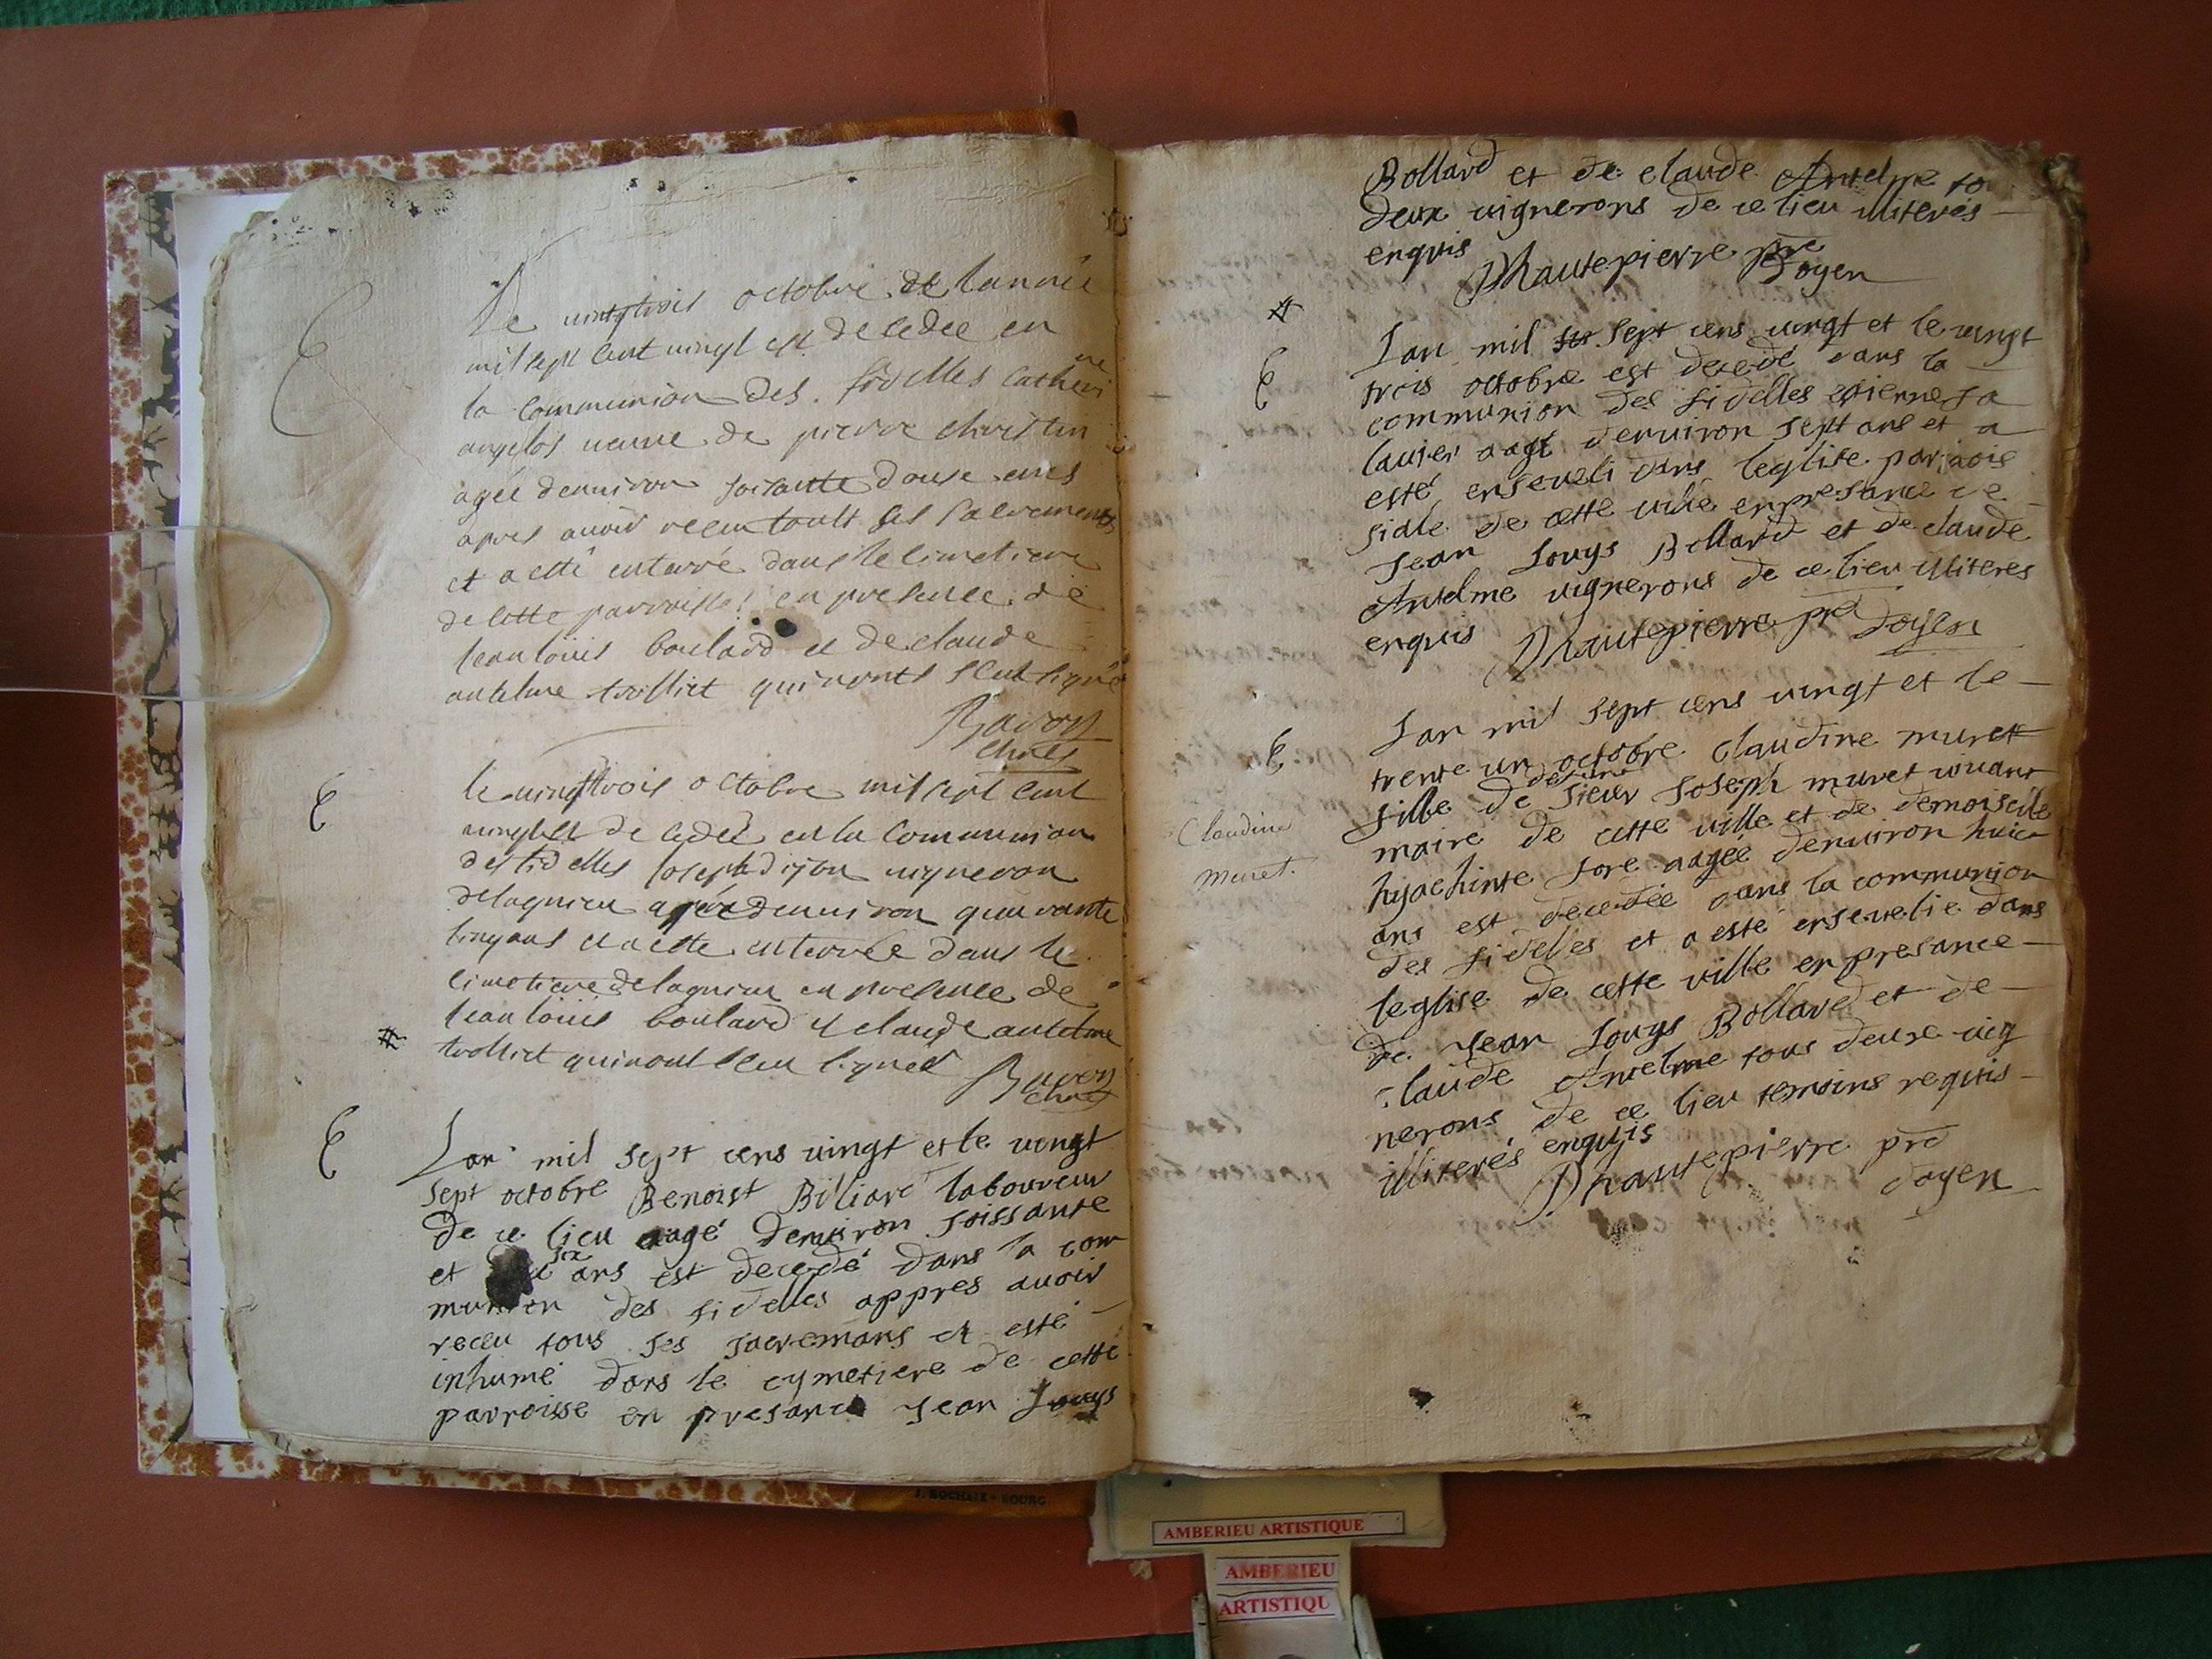 E
Le vingtrois octobre de lannée
mil sept cent vingt est decedee en
la communion des fidelles catheri ne
angelos veuve de pierre christin
agée denuiron soisante douse ans
apres auoir receu toutt ses sacrements
et a esté enterré dans le cimetiere
de cette parroisse en presence de
jean loüis boulard et de claude
antelme trolliet qui nonts seut signé
E
le vingttrois octobre mil sept cent
vingt est decedé en la communion
des fidelles joseph vigneron
de lagnieu agée denuiron quarante
cinq ans et a esté enterrée dans le
cimetiere de lagnieu en presence de
jean loüis boulard et claude antelme
trolliet qui nont seu signer
E
Lan mil sept cens vingt et le vingt
sept octobre Benoist Billiard laboureur
de ce lieu aagé denuiron soissante
et six ans est decedé dans la com
munion des fidelles appres auoir
receu tous ses sacremans et esté
inhumé dans le cymetiere de cette
parroisse en presance Jean Louys
Bollard et de claude Antelme to
deux vignerons de ce lieu illiterés
enquis
Dhautepierre pre
Doyen
E
Lan mil sept cens vingt et le vingt
trois octobre est decedé dans la
communion des fidelles estienne
aagé denuiron sept ans et a
esté enseueli dans leglise parrois
sialle de cette ville en presance de
Jean Louys Bollard et de claude
Antelme vignerons de ce lieu illiteres
enquis Dhautepierre pre
doyen
E
Claudine
Muret.
Lan mil sept cens vingt et le
trente un octobre claudine muret
fille de defunt sieur Joseph muret viuant
maire de cette ville et de demoiselle
hyachinte fore aagée denuiron huict
ans est decedée dans la communion
des fidelles et a esté enseuelie dans
leglise de cette ville en presance
de Jean Louys Bollard et de
claude Antelme tous deux vig
nerons de ce lieu temoins requis
illiterés enquis
Dhautepierre pre
doyen
J. ROCHAIX - BOURG
AMBERIEU ARTISTIQUE
AMBERIEU
ARTISTIQU